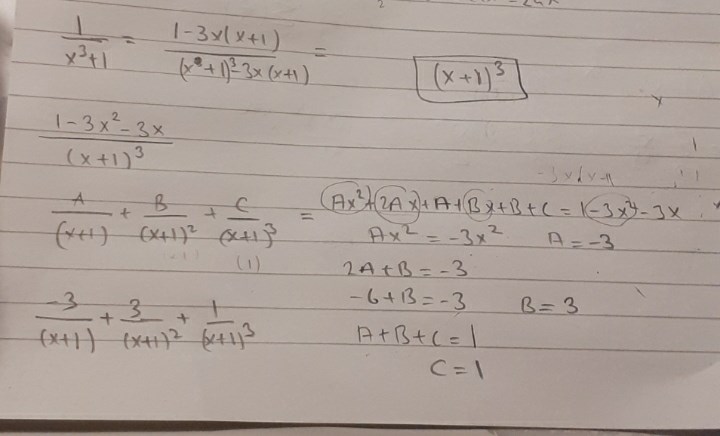 1/(x³+1) = (1-3x(x+1))/((x+1)³-3x(x+1)) =
(x+1)³
(1-3x²-3x)/(x+1)³
A/(x+1) + B/(x+1)² + C/(x+1)³ = Ax²+2Ax+A+Bx+B+C = 1-3x²-3x
(1)
Ax² = -3x² A = -3
2A+B = -3
-6+B = -3 B = 3
-3/(x+1) + 3/(x+1)² + 1/(x+1)³
A+B+C = 1
C = 1